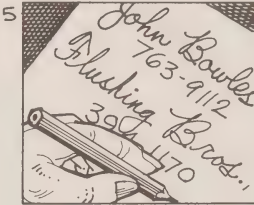 5
John Bowles
763-9112
Flushing Bros.,
304-1170